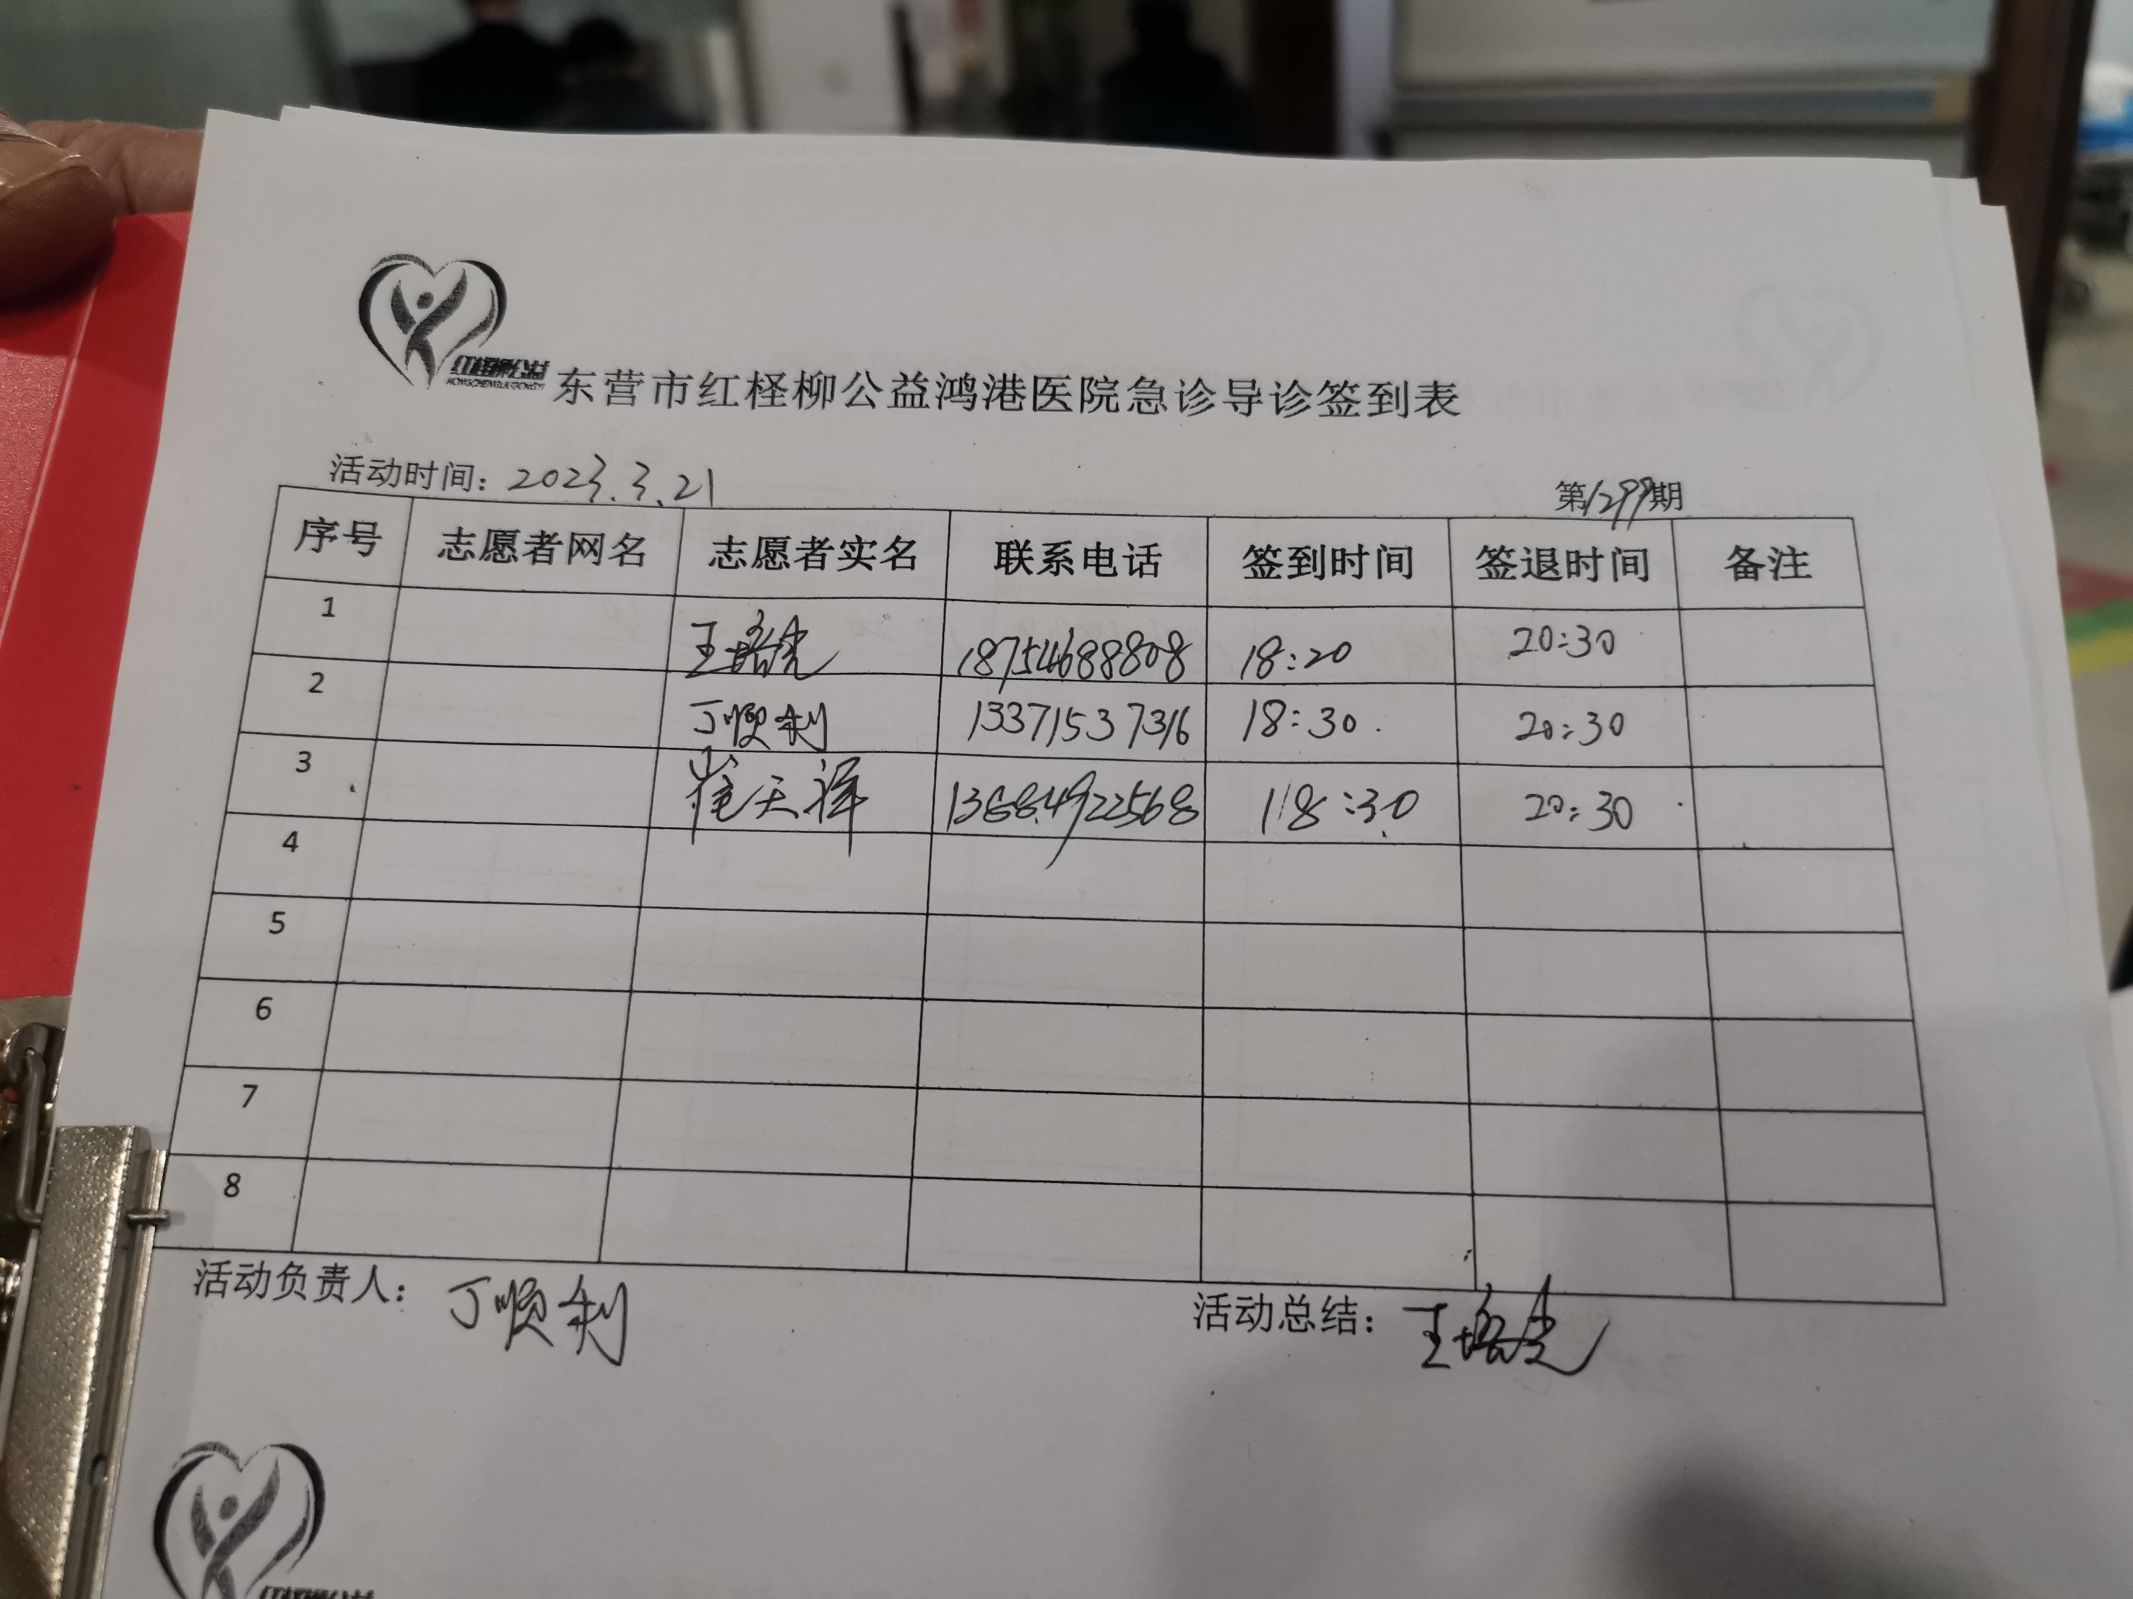 红柽柳公益
HONGCHENGLIUGONGYI
东营市红柽柳公益鸿港医院急诊导诊签到表
活动时间：2023.3.21 第1299期
序号 志愿者网名 志愿者实名 联系电话 签到时间 签退时间 备注
1 王培虎 18754688808 18:20 20:30
2 丁顺利 13371537316 18:30 20:30
3 崔天祥 13684922568 18:30 20:30
4
5
6
7
8
活动负责人：丁顺利 活动总结：王培虎
红柽柳公益